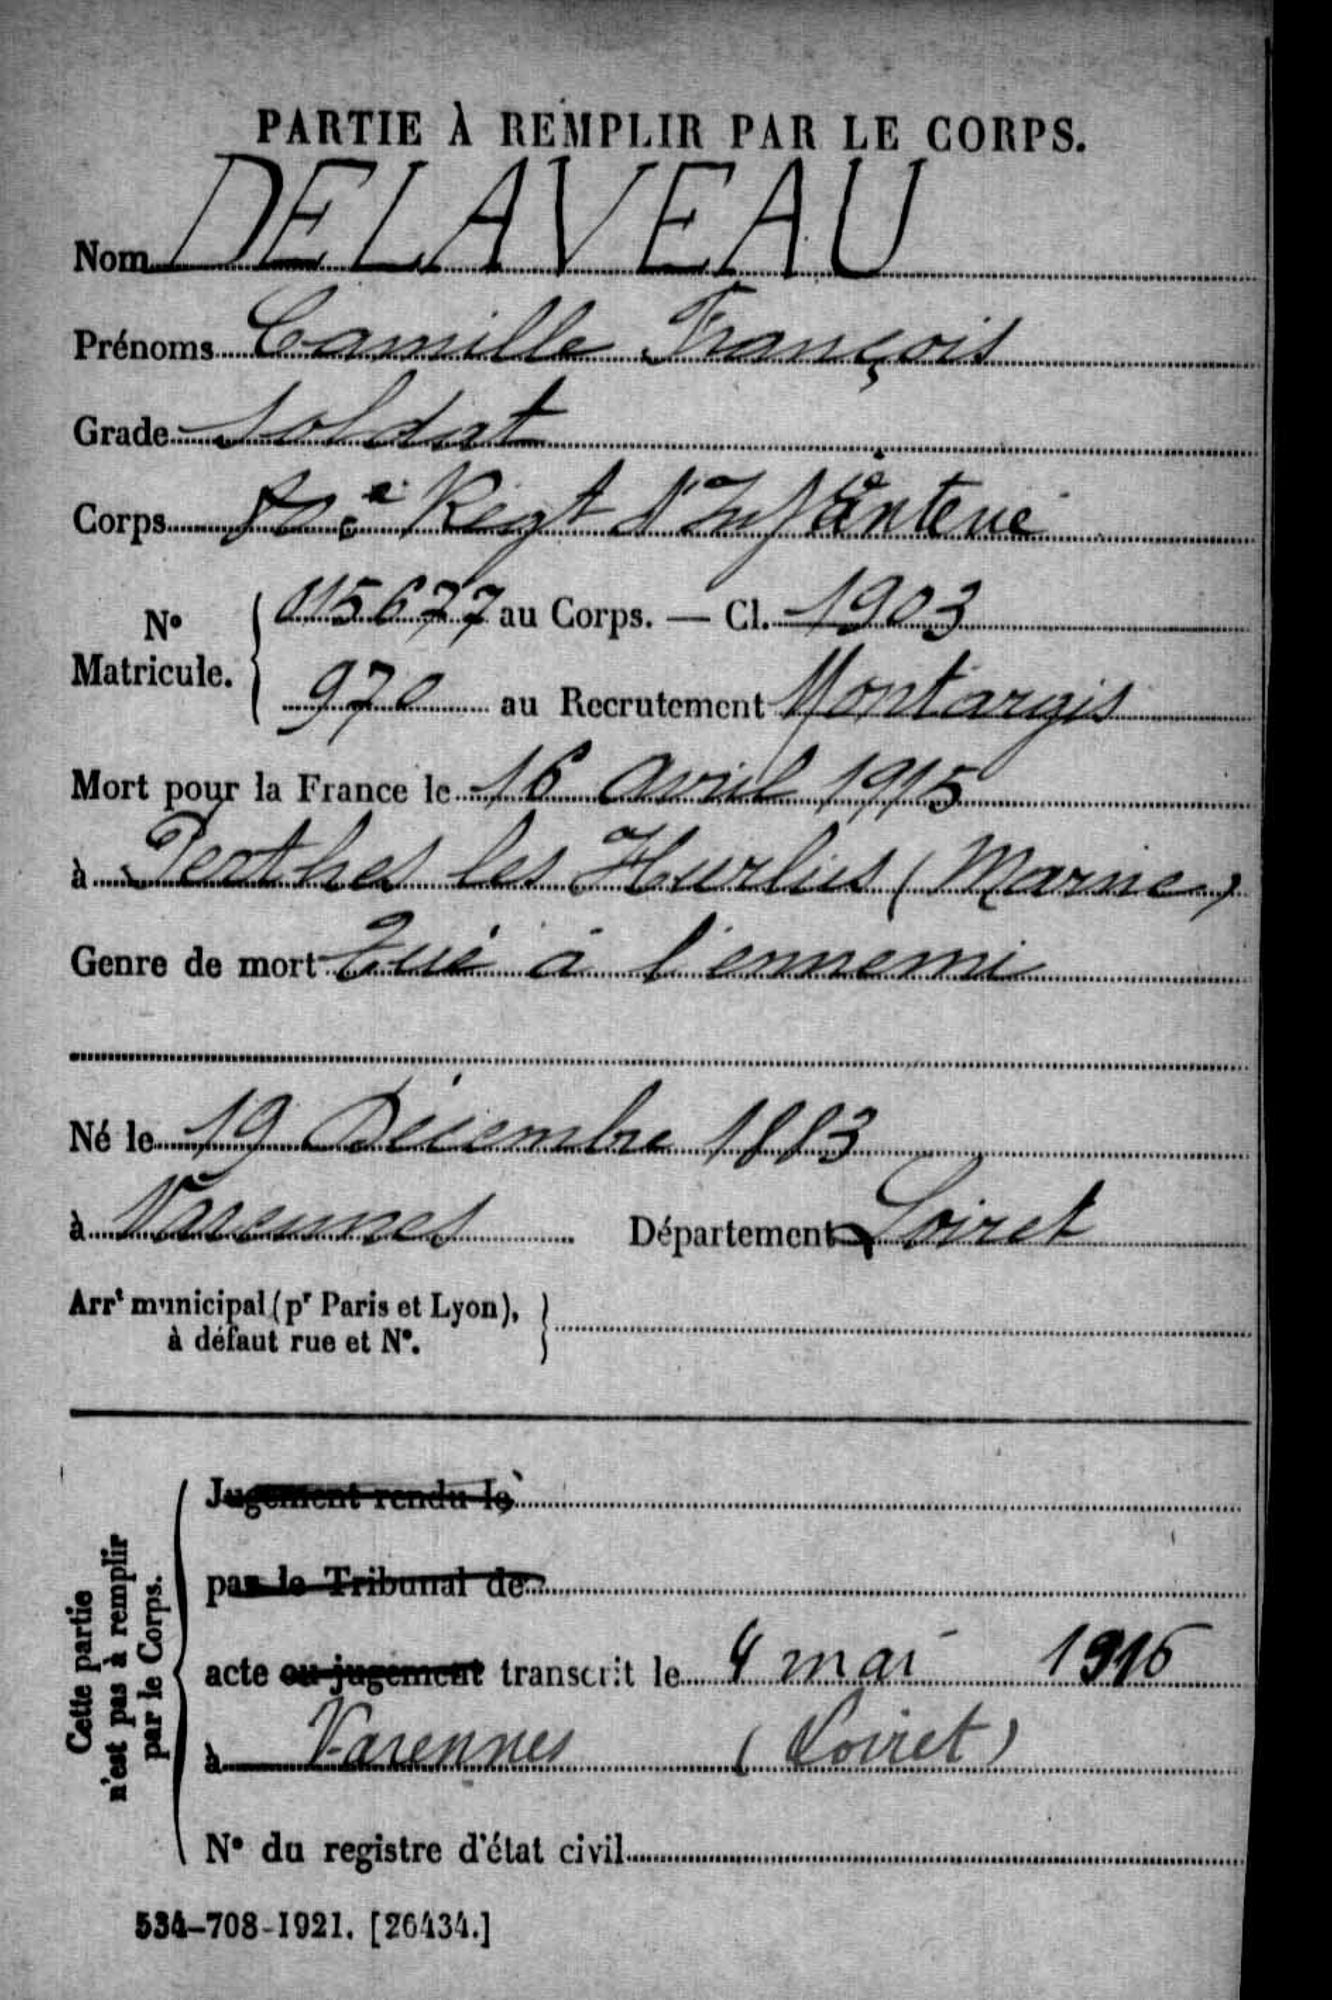 PARTIE À REMPLIR PAR LE CORPS.
Nom DELAVEAU
Prénoms Camille François
Grade Soldat
Corps e Régt d'Infanterie
No Matricule. 015677 au Corps. — Cl. 1903
970 au Recrutement Montargis
Mort pour la France le 16 avril 1915
à Perthes les Hurlus (Marne)
Genre de mort Tué à l'ennemi
Né le 19 Décembre 1883
à Varennes Département Loiret
Arrt municipal (pr Paris et Lyon),
à défaut rue et No.
Cette partie
n'est pas à remplir
par le Corps.
Jugement rendu le
par le Tribunal de
acte ou jugement transcrit le 4 mai 1916
à Varennes (Loiret)
No du registre d'état civil
534-708-1921. [26434.]